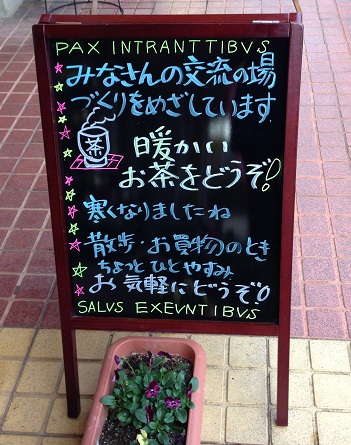 PAX INTRANTTIBVS
みなさんの交流の場
づくりをめざしています
茶
暖かい
お茶をどうぞ!
寒くなりましたね
散歩・お買物のとき
ちょっとひとやすみ
お気軽にどうぞ!
SALVS EXEVNTIBVS